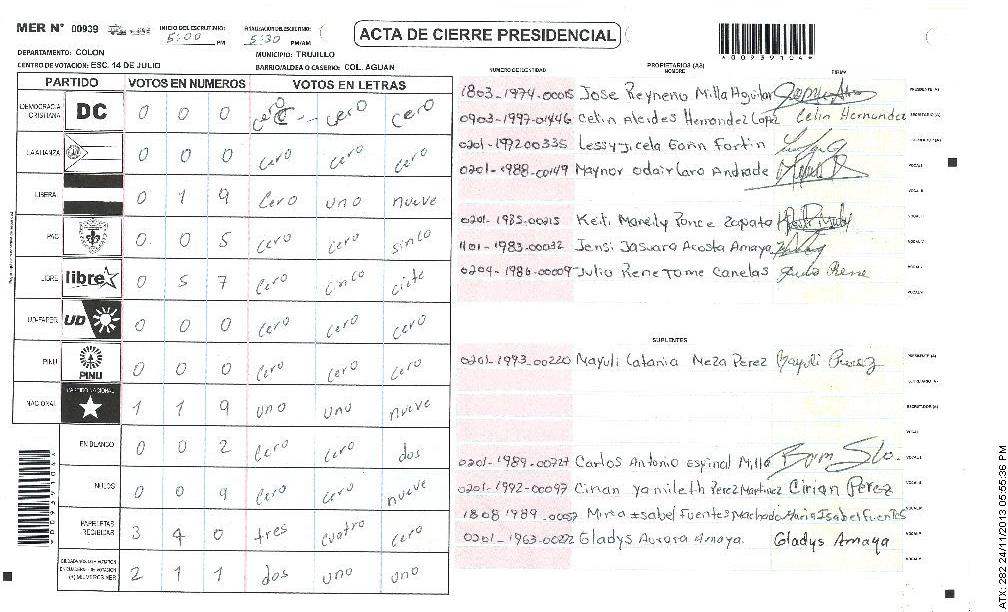 MER N° 00939
INICIO DEL ESCRUTINIO: 5:00 PM
FINALIZACION DEL ESCRUTINIO: 5:30 PM/AM
ACTA DE CIERRE PRESIDENCIAL
*00939104*
DEPARTAMENTO: COLON
MUNICIPIO: TRUJILLO
CENTRO DE VOTACION: ESC. 14 DE JULIO
BARRIO/ALDEA O CASERIO: COL. AGUAN
PARTIDO VOTOS EN NUMEROS VOTOS EN LETRAS
DEMOCRACIA CRISTIANA DC 0 0 0 cero cero cero
LA ALIANZA 0 0 0 cero cero cero
LIBERAL 0 1 9 cero uno nueve
PAC 0 0 5 cero cero sinco
LIBRE libre 0 5 7 cero cinco ciete
UD-FAPER UD 0 0 0 cero cero cero
PINU PINU 0 0 0 cero cero cero
NACIONAL PARTIDO NACIONAL 1 1 9 uno uno nueve
EN BLANCO 0 0 2 cero cero dos
NULOS 0 0 9 cero cero nueve
PAPELETAS RECIBIDAS 3 4 0 tres cuatro cero
(+) MIEMBROS MER 2 1 1 dos uno uno
NUMERO DE IDENTIDAD PROPIETARIOS (AS) NOMBRE FIRMA
1803-1974-00015 Jose Reyneru Milla Aguilar PRESIDENTE (A)
0903-1997-01446 Celin Alcides Hernandez Lopez Celin Hernandez SECRETARIO (A)
0201-1972 00335 Lessy Jicela Garin Fortin
0201-1988-00149 Maynor odair Laro Andrade VOCAL I
VOCAL II
0201-1985-00215 Keiti Maredy Ponce Zapata
1101-1983-00032 Jensi Jasuara Acosta Amaya VOCAL IV
0204-1986-00009 Julio Rene Tome Canelas Julio Rene
SUPLENTES
0201-1993-00220 Mayuli Catania Meza Perez Mayuli Perez PRESIDENTE (A)
SECRETARIO (A)
ESCRUTADOR (A)
0201-1989-00727 Carlos Antonio Espinal Milla
0201-1992-00097 Cirian yamileth Perez Martinez Cirian Perez
1808 1989-00057 Mirea Isabel Fuentes Machado Maria Isabel Fuentes
0201-1963-00272 Gladys Aurora Amaya. Gladys Amaya
*00939104*
ATX: 282 24/11/2013 05:55:36 PM